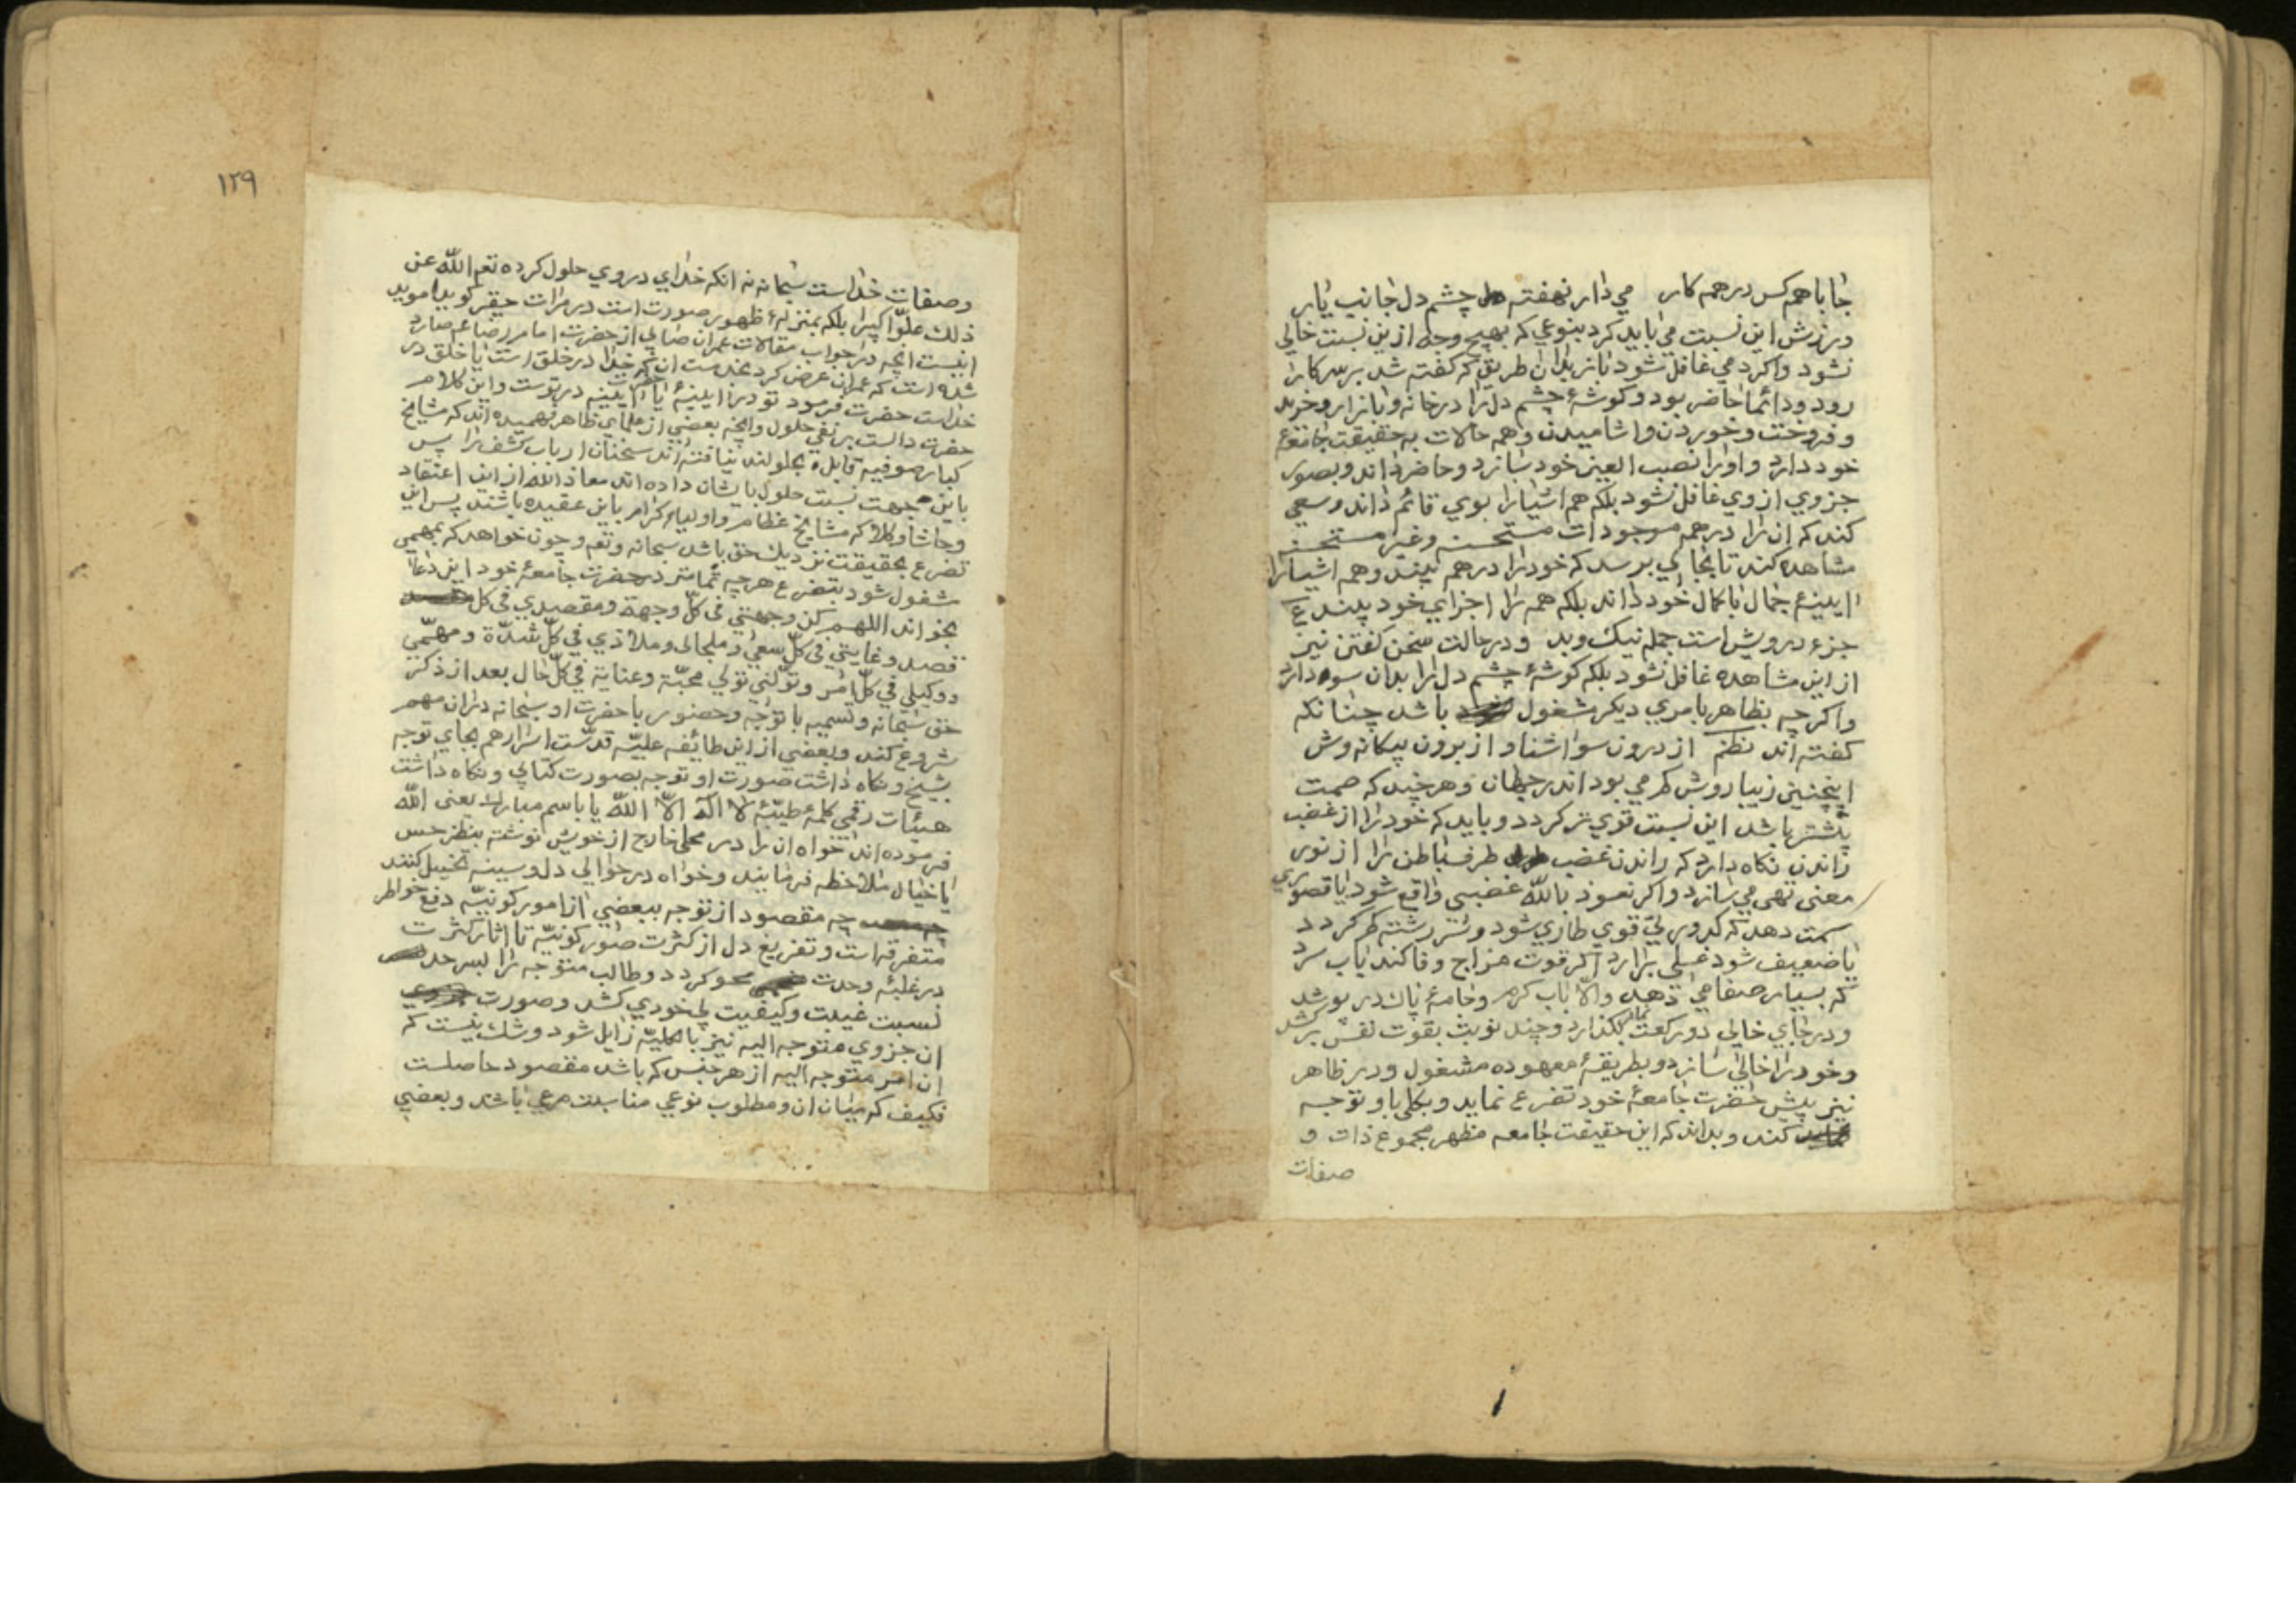 جا با همه کس در همه کار می دار نهفته چشم دل جانب یار
ورزش این نسبت می باید کرد بنوعی که بهیچ وجه ازین نسبت خالی
نشود واکر دمی غافل شود باز بدان طریق که کفته شد بر سر کار
رود ودائما حاضر بود وکوشۀ چشم دل را در خانه وبازار وخرید
وفروخت وخوردن واشامیدن وهمه حالات به حقیقت جامعۀ
خود دارد واورا نصب العین خود سازد وحاضر داند وبصور
جزوی ازوی غافل نشود بلکه همه اشیارا بوی قائم داند وسعی
کند که ان را در همه موجودات مستحسنه وغیر مستحسنه
مشاهده کند تا بجایی برسد که خود را در همه بیند وهمه اشیارا
ایینۀ جمال با کمال خود داند بلکه همه را اجزای خود بیند ع
جزء درویش است جمله نیک وبد ودر حالت سخن کفتن نیز
از این مشاهده غافل نشود بلکه کوشۀ چشم دل را بدان سو دارد
واکر چه بظاهر بامری دیکر مشغول باشد چنانکه
کفته اند نظم از درون سو اشنا و از برون بیکانه وش
اینچنین زیبا روش کم می بود اندر جهان وهر چند که صمت
بیشتر باشد این نسبت قوی تر کردد وباید که خود را از غضب
راندن نکاه دارد که راندن غضب ظرف باطن را از نور
معنی تهی می سازد واکر نعوذ بالله غضبی واقع شود یا قصوری
سمت دهد که کدورتی قوی طاری شود وسر رشته کم کردد
یا ضعیف شود غسلی برارد اکر قوت مزاج وفا کند باب سرد
که بسیار صفا می دهد والا باب کرم وجامۀ پاک در پوشد
ودر جای خالی دو رکعت نماز بکذارد وچند نوبت بقوت نفس برکشد
وخود را خالی سازد وبطریقۀ معهوده مشغول ودر ظاهر
نیز پیش حضرت جامعۀ خود تضرع نماید وبکلی باو توجه
کند وبداند که این حقیقت جامعه مظهر مجموع ذات و
صفات
١٢٩
وصفات خداست سبحانه نه انکه خدای در وی حلول کرده تعم الله عن
ذلک علوا کبیرا بلکه بمنزلۀ ظهور صورت است در مرات حقیر کوید موید
اینست انچه در جواب مقالات عمران صابی از حضرت امام رضا عم صادر
شده است که عمران عرض کرد بخدمت ان که خدا در خلق است یا خلق در
خداست حضرت فرمود تو در ایینۀ یا ایینه در توست واین کلام
حضرت دالست بر نفی حلول وانچه بعضی از علمای ظاهر فهمیده اند که مشایخ
کبار صوفیه قابل بحلولند نیافته اند سخنان ارباب کشف را پس
باین جهت نسبت حلول بایشان داده اند معاذ الله از این اعتقاد
وحاشا وکلا که مشایخ عظام واولیاء کرام باین عقیده باشند پس این
تضرع بحقیقت نزدیک حق باشد سبحانه وتعم وچون خواهد که بمهمی
مشغول شود بتضرع هر چه تمامتر در حضرت جامعۀ خود این دعا
بخواند اللهم کن وجهتی فی کل وجهة ومقصدی فی کل
قصد وغایتی فی کل سعی وملجای وملاذی فی کل شدة ومهمی
ووکیلی فی کل امر وتولنی تولی محبة وعنایة فی کل حال بعد از ذکر
حق سبحانه وتسمیه با توجه وحضور با حضرت او سبحانه در ان مهم
شروع کند وبعضی از این طائفه علیه قدست اسرارهم بجای توجه
بشیخ ونکاه داشت صورت او توجه بصورت کتابی ونکاه داشت
هیئات رقمی کلمۀ طیبۀ لا اله الا الله یا باسم مبارک یعنی الله
فرموده اند خواه ان را در محلی خارج از خویش نوشته بنظر حس
یا خیال ملاحظه فرمایند وخواه در حوالی دل وسینه تخییل کنند
چه مقصود از توجه ببعضی از امور کونیه دفع خواطر
متفرقه است وتفریغ دل از کثرت صور کونیه تا اثار کثرت
در غلبۀ وحدت محو کردد وطالب متوجه را بسرحد
نسبت غیبت وکیفیت بی خودی کشد وصورت
ان جزوی متوجه الیه نیز بالکلیه زایل شود وشک نیست که
ان امر متوجه الیه از هر جنس که باشد مقصود حاصلست
فکیف که میان ان ومطلوب نوعی مناسبت مرعی باشد وبعضی